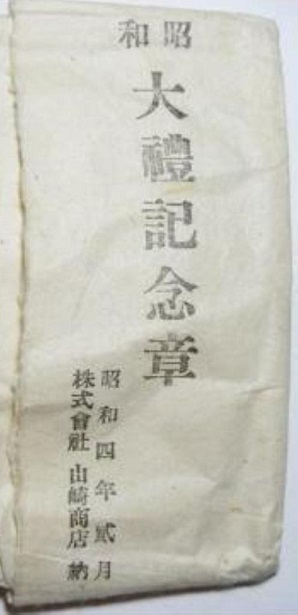 昭和
大禮記念章
昭和四年貳月
株式會社山崎商店納